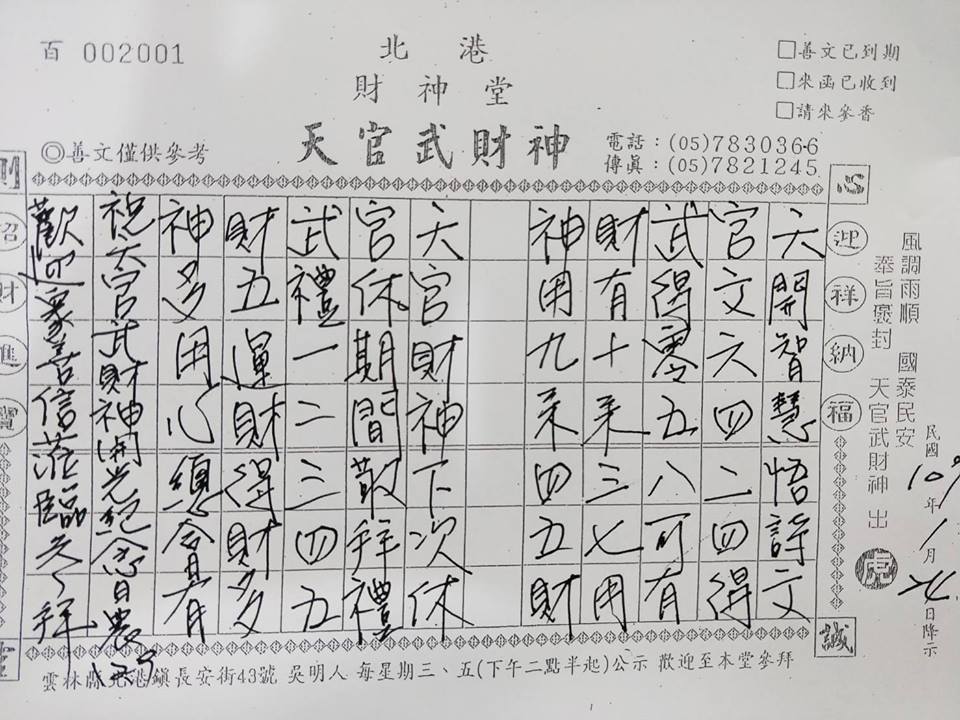 百 002001
北港
財神堂
天官武財神
◎善文僅供參考
□善文已到期
□來函已收到
□請來參香
電話：(05)7830366
傳眞：(05)7821245
心
誠
迎祥納福
招財進寶
風調雨順 國泰民安
奉旨褒封 天官武財神 出
民國109年1月 日降示
天開智慧悟詩文
官文六四二四得
武得零五八可有
財有十來三七用
神用九來四五財
天官財神下次休
官休期間敬拜禮
武禮一二三四五
財五運財得財多
神多用心總會有
祝天官武財神開光紀念日農
歡迎眾善信蒞臨参拜
雲林縣北港鎮長安街43號 吳明人 每星期三、五(下午二點半起)公示 歡迎至本堂參拜